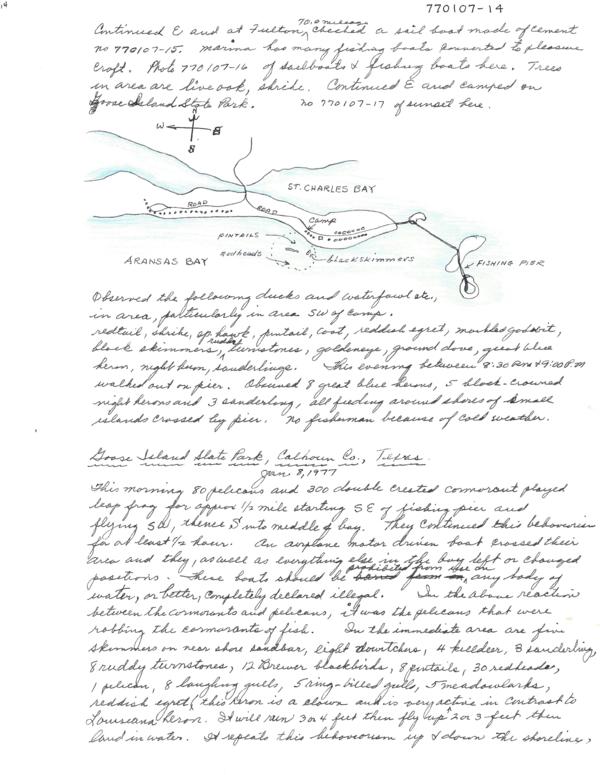 770107-14
70.0 mileage
Continued E and at Fulton, checked a sail boat made of cement
no 770107-15. Marina has many fishing boats converted to pleasure
croft. Photo 770107-16 of sailboats & fishing boats here. Trees
in area are live oak, shride. Continued E and camped on
Goose Island State Park. no 770107-17 of sunset here.
W E
S
ST. CHARLES BAY
ROAD
ROAD
Camp
PINTAILS
redheads
blackskimmers
ARANSAS BAY
FISHING PIER
Observed the following ducks and waterfowl etc.,
in area, particularly in area SW of camp.
redtail, shrike, sp. hawk, pintail, coot, reddish egret, marbled godwit,
black skimmers, ruddy turnstones, goldeneye, ground dove, great blue
heron, night heron, sanderlings. This evening between 8:30 Pm & 9:00 P.M
walked out on pier. Observed 8 great blue herons, 5 black-crowned
night herons and 3 sanderling, all feeding around shores of small
islands crossed by pier. No fisherman because of cold weather.
Goose Island State Park, Calhoun Co., Texas.
Jan 8, 1977
This morning 80 pelicans and 300 double crested cormorant played
leap frog for approx 1/2 mile starting SE of fishing pier and
flying SW, thence S into middle of bay. They continued this behaviorism
for at least 1/2 hour. An airplane motor driven boat crossed their
area and they, as well as everything else in the bay left or changed
positions. These boats should be prohibited from use on any body of
water, or better, completely declared illegal. In the above reaction
between the cormorants and pelicans, it was the pelicans that were
robbing the cormorants of fish. In the immediate area are five
skimmers on near shore sandbar, eight dowitchers, 4 killdeer, 3 sanderling,
8 ruddy turnstones, 12 Brewer blackbirds, 8 pintails, 30 redheads,
1 pelican, 8 laughing gulls, 5 ring-billed gulls, 5 meadowlarks,
reddish egret, (this heron is a clown and is very active in contrast to
Louisiana heron. It will run 3 or 4 feet then fly up 2 or 3 feet then
land in water. It repeats this behaviorism up & down the shoreline,